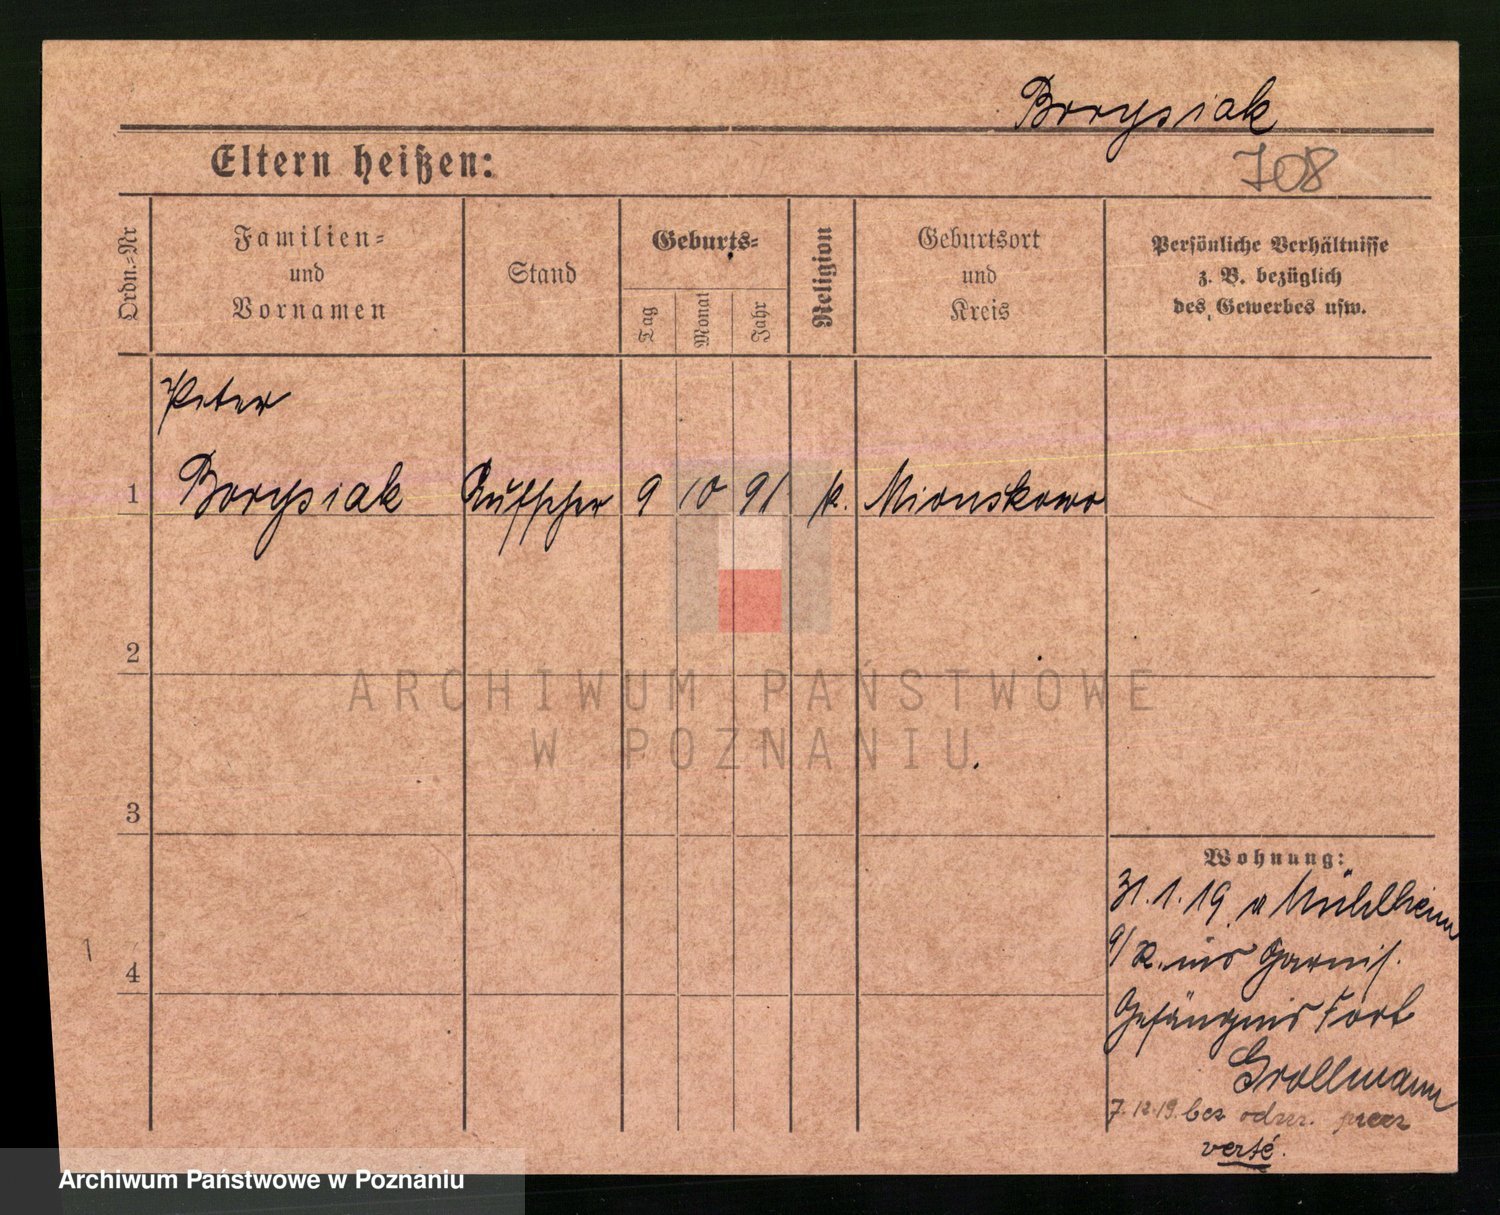 Borysiak
Eltern heißen:
708
Ordn.-Nr
Familien-
und
Vornamen
Stand
Geburts-
Tag
Monat
Jahr
Religion
Geburtsort
und
Kreis
Persönliche Verhältnisse
z. B. bezüglich
des Gewerbes usw.
Peter
1 Borysiak Kutscher 9 10 91 k. Mionskowo
2
ARCHIWUM PAŃSTWOWE
W POZNANIU
3
Wohnung:
31.1.19. v Mühlheim
a/R. ins Garnis.
1
4
Gefängnis Fort
Grollmann
7.12.19. bez odm. przez
Archiwum Państwowe w Poznaniu